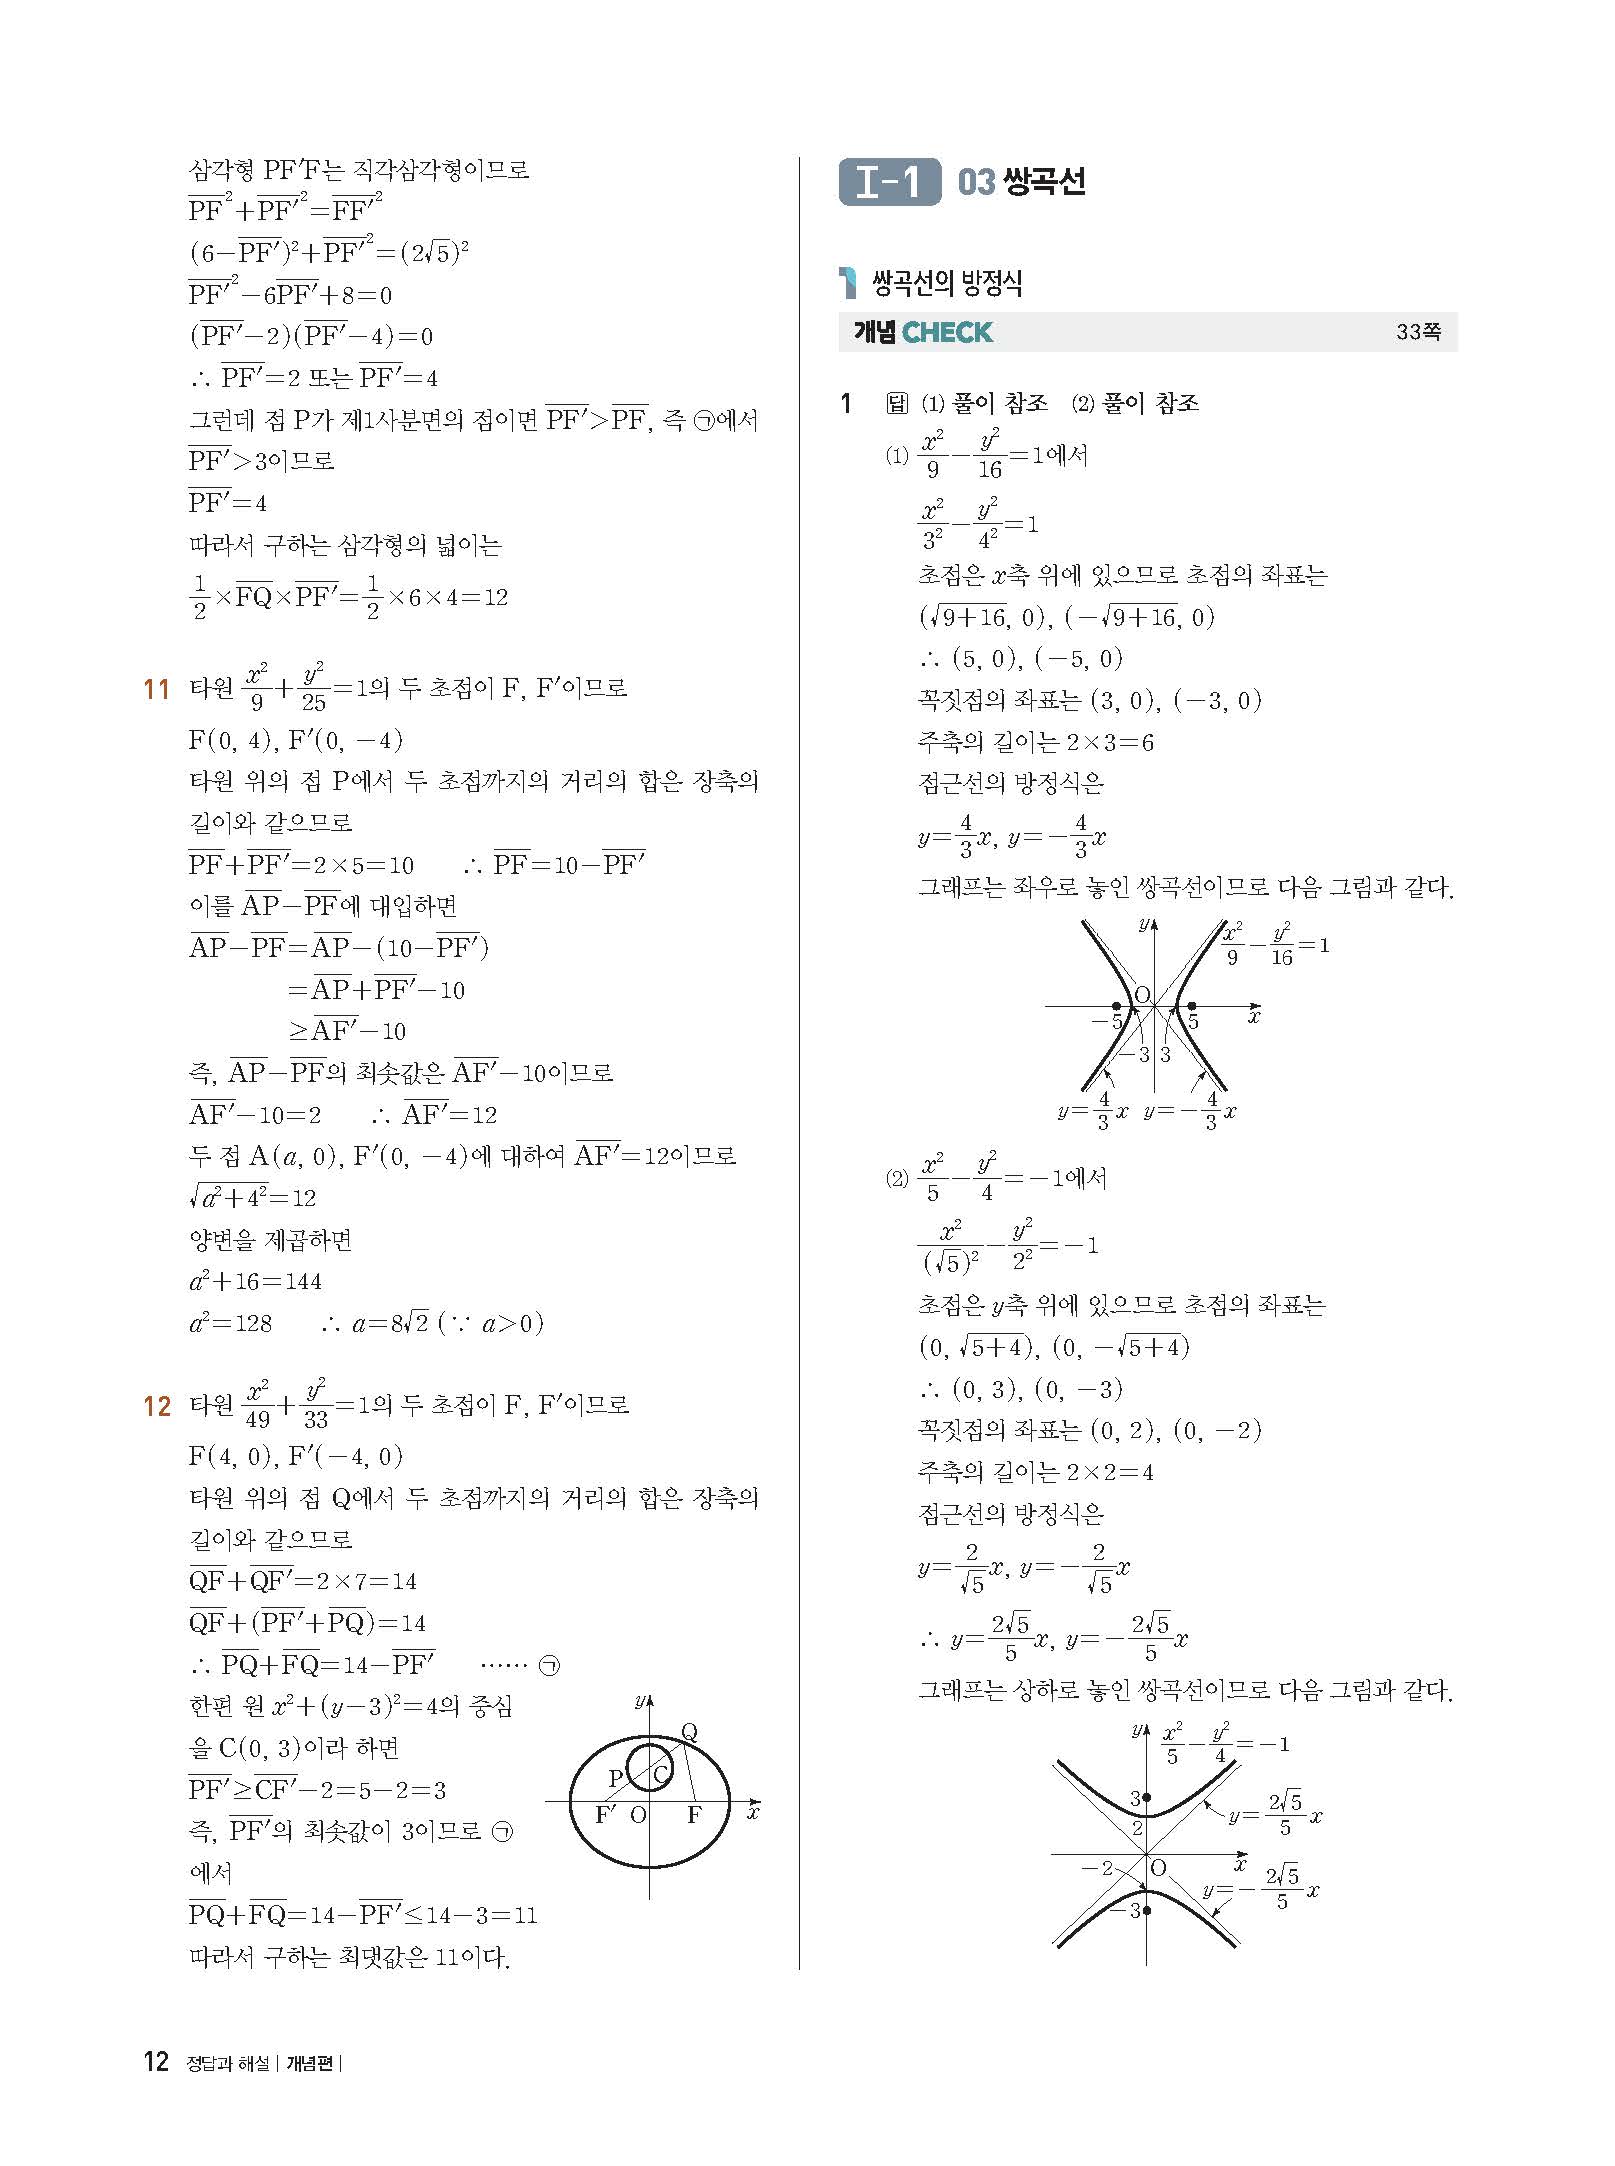 삼각형 PF′F는 직각삼각형이므로
PF²+PF′²=FF′²
(6-PF′)²+PF′²=(2√5)²
PF′²-6PF′+8=0
(PF′-2)(PF′-4)=0
∴ PF′=2 또는 PF′=4
그런데 점 P가 제1사분면의 점이면 PF′>PF, 즉 ㉠에서
PF′>3이므로
PF′=4
따라서 구하는 삼각형의 넓이는
1/2×FQ×PF′=1/2×6×4=12
11 타원 x²/9+y²/25=1의 두 초점이 F, F′이므로
F(0, 4), F′(0, -4)
타원 위의 점 P에서 두 초점까지의 거리의 합은 장축의
길이와 같으므로
PF+PF′=2×5=10 ∴ PF=10-PF′
이를 AP-PF에 대입하면
AP-PF=AP-(10-PF′)
=AP+PF′-10
≥AF′-10
즉, AP-PF의 최솟값은 AF′-10이므로
AF′-10=2 ∴ AF′=12
두 점 A(a, 0), F′(0, -4)에 대하여 AF′=12이므로
√(a²+4²)=12
양변을 제곱하면
a²+16=144
a²=128 ∴ a=8√2 (∵ a>0)
12 타원 x²/49+y²/33=1의 두 초점이 F, F′이므로
F(4, 0), F′(-4, 0)
타원 위의 점 Q에서 두 초점까지의 거리의 합은 장축의
길이와 같으므로
QF+QF′=2×7=14
QF+(PF′+PQ)=14
∴ PQ+FQ=14-PF′ …… ㉠
한편 원 x²+(y-3)²=4의 중심
을 C(0, 3)이라 하면
PF′≥CF′-2=5-2=3
즉, PF′의 최솟값이 3이므로 ㉠
에서
PQ+FQ=14-PF′≤14-3=11
따라서 구하는 최댓값은 11이다.
y
Q
P C
F′ O F x
12 정답과 해설 | 개념편 |
Ⅰ-1 03 쌍곡선
1 쌍곡선의 방정식
개념 CHECK 33쪽
1 답 ⑴ 풀이 참조 ⑵ 풀이 참조
⑴ x²/9-y²/16=1에서
x²/3²-y²/4²=1
초점은 x축 위에 있으므로 초점의 좌표는
(√(9+16), 0), (-√(9+16), 0)
∴ (5, 0), (-5, 0)
꼭짓점의 좌표는 (3, 0), (-3, 0)
주축의 길이는 2×3=6
점근선의 방정식은
y=4/3x, y=-4/3x
그래프는 좌우로 놓인 쌍곡선이므로 다음 그림과 같다.
y x²/9-y²/16=1
O
-5 5 x
-3 3
y=4/3x y=-4/3x
⑵ x²/5-y²/4=-1에서
x²/(√5)²-y²/2²=-1
초점은 y축 위에 있으므로 초점의 좌표는
(0, √(5+4)), (0, -√(5+4))
∴ (0, 3), (0, -3)
꼭짓점의 좌표는 (0, 2), (0, -2)
주축의 길이는 2×2=4
점근선의 방정식은
y=2/√5x, y=-2/√5x
∴ y=2√5/5x, y=-2√5/5x
그래프는 상하로 놓인 쌍곡선이므로 다음 그림과 같다.
y x²/5-y²/4=-1
3
y=2√5/5x
2
-2 O x
y=-2√5/5x
-3